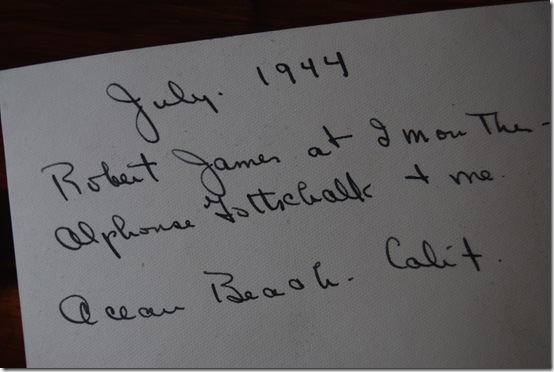 July. 1944
Robert James at 2 months -
Alphonse Gottschalk + me.
Ocean Beach. Calif.